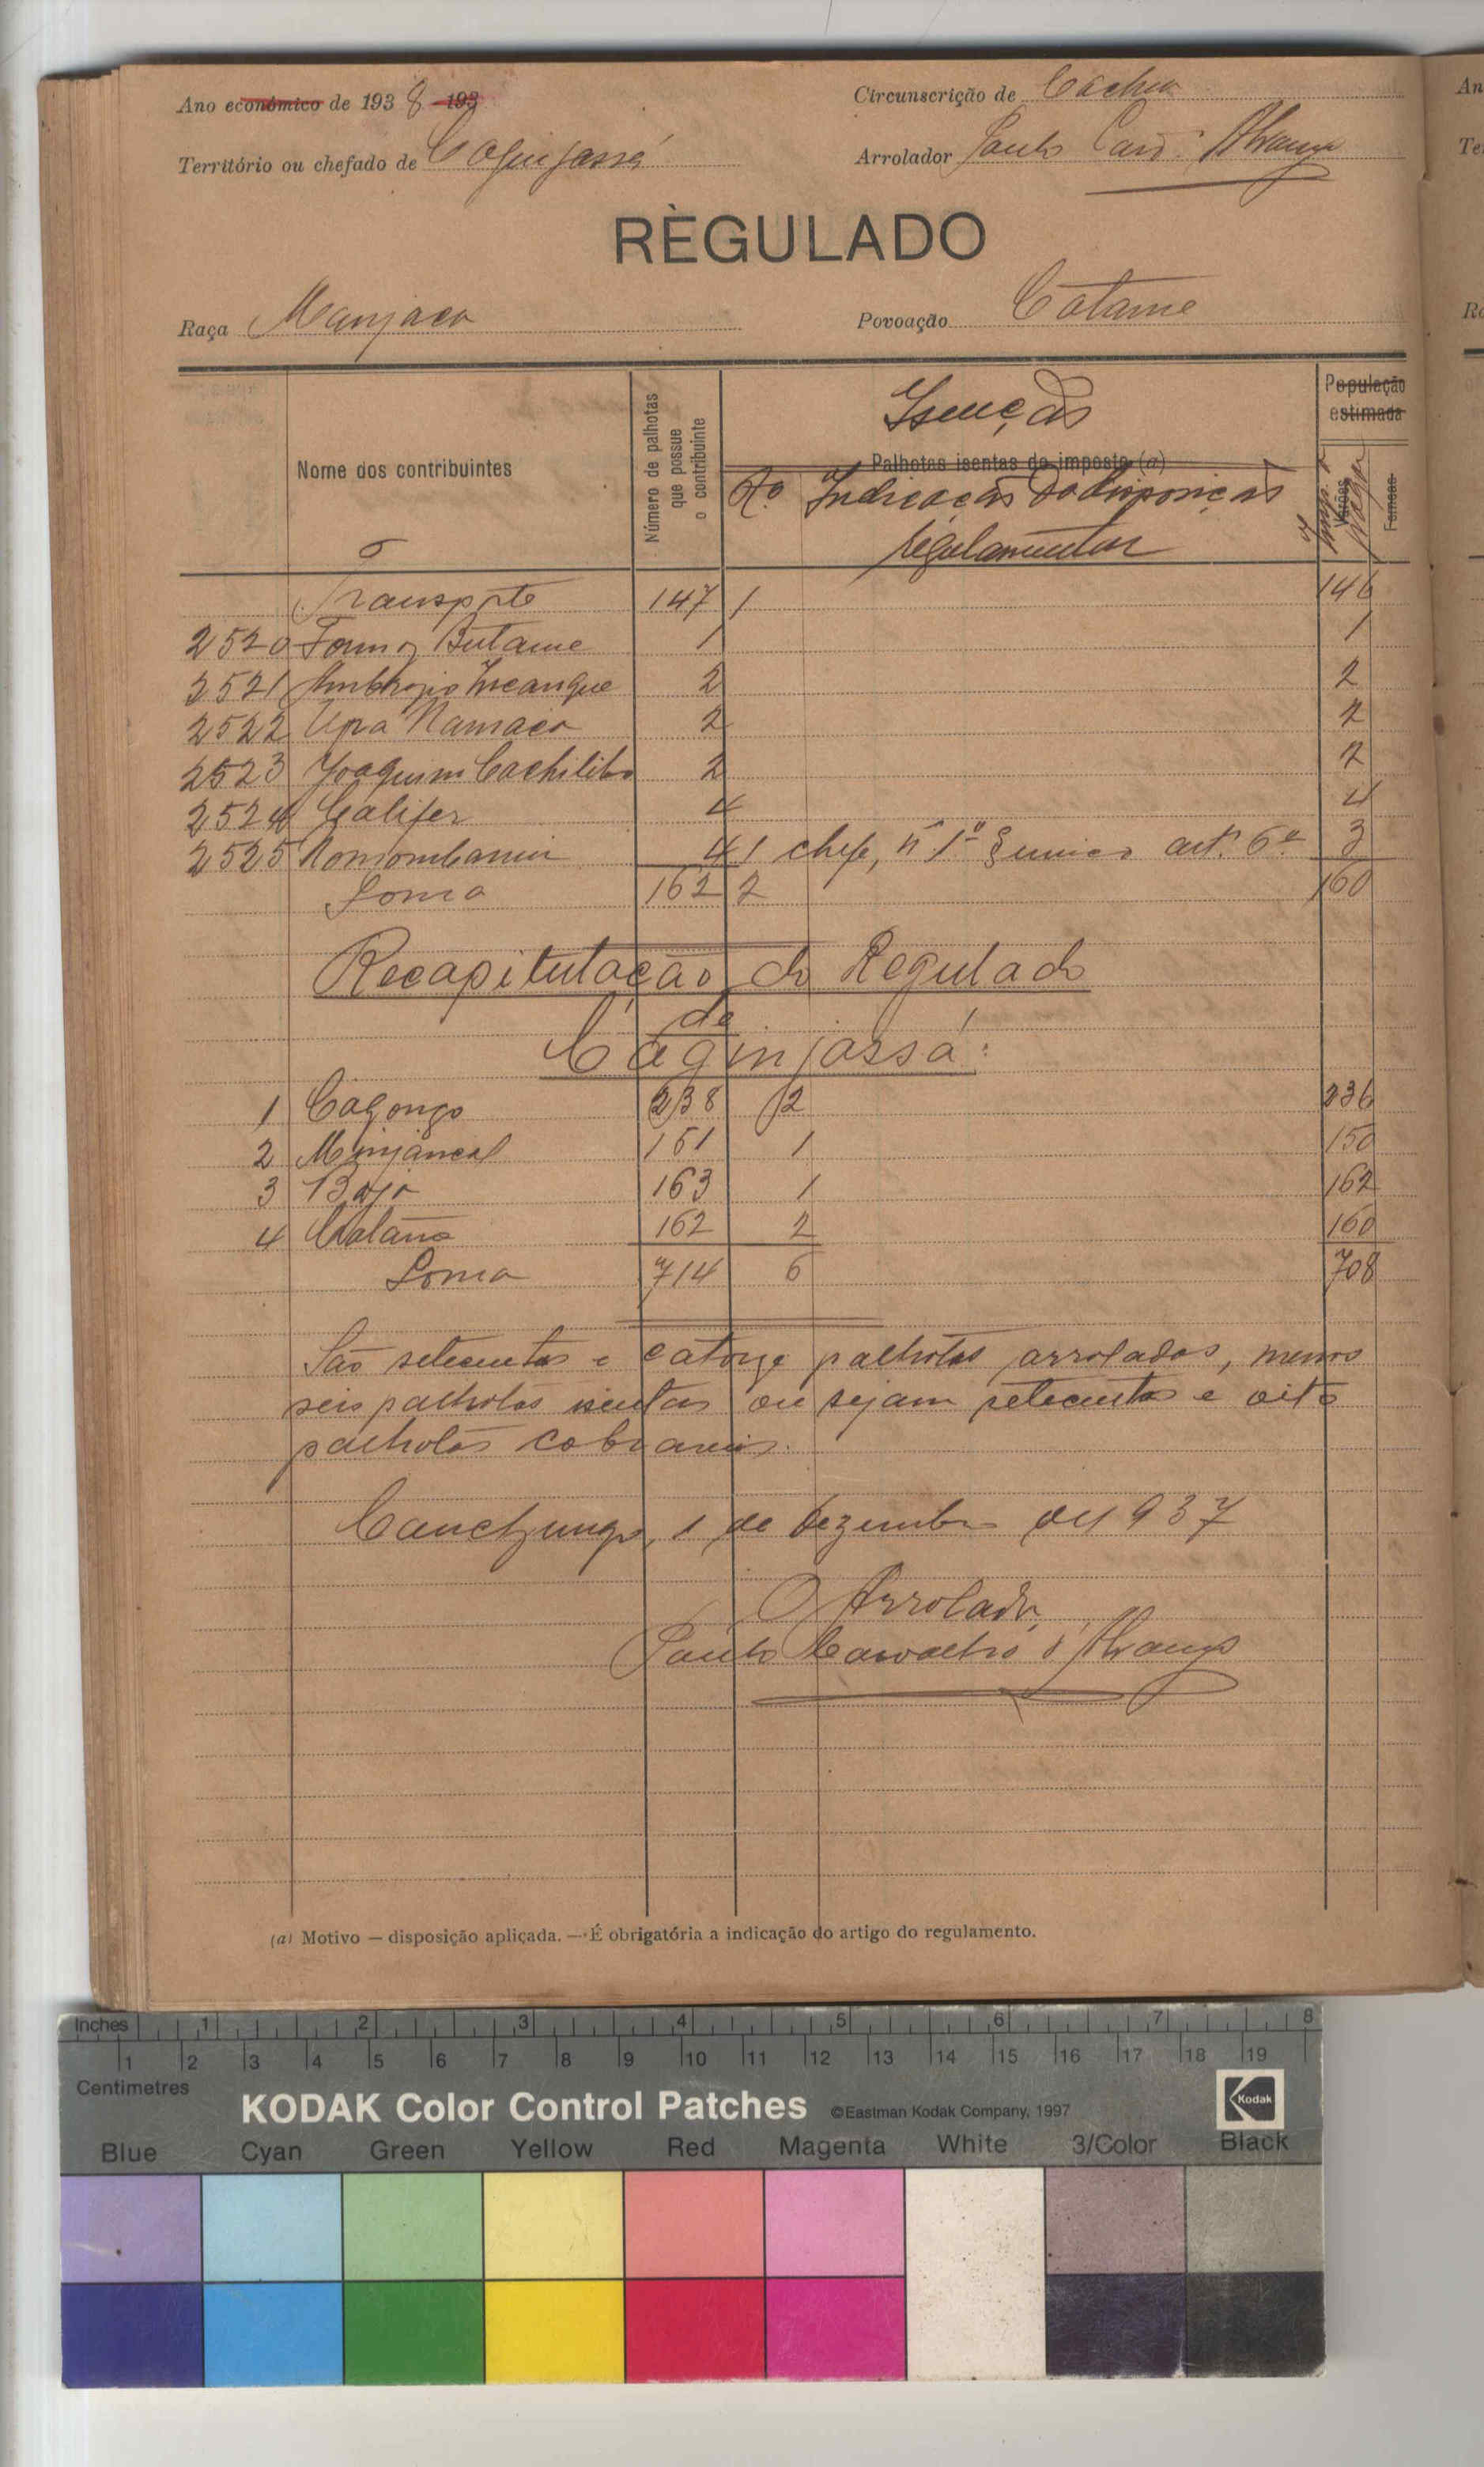 Ano económico de 1938 193
Circunscrição de Cacheu
Território ou chefado de Caginjassá
Arrolador Paulo Carv. d'Alvarenga
RÈGULADO
Raça Manjaca
Povoação Catame
Nome dos contribuintes
Número de palhotas que possue o contribuinte
Isenção
Palhotas isentas de imposto (a)
N.º Indicação da disposição
regulamentar
População estimada
Varões
Femeas
Transporte 147 1 146
2520 Butame 1 1
2521 Ambrozio 2 2
2522 Upa Namaca 2 2
2523 Joaquim Cachilibo 2 2
2524 Califer 4 4
2525 4 1 chefe, nº 1º § unico artº 6º 3
Soma 162 2 160
Recapitulação do Regulado
de
Caginjassá:
1 Cagongo 238 2 236
2 Minjancal 151 1 150
3 Bajo 163 1 162
4 Catame 162 2 160
Soma 714 6 708
São setecentas e catorze palhotas arroladas, menos
seis palhotas isentas ou sejam setecentas e oito
palhotas cobraveis.
Canchungo, 1 de Dezembro de 1937
O Arrolador,
Paulo Carvalho d'Alvarenga
(a) Motivo — disposição aplicada. — É obrigatória a indicação do artigo do regulamento.
Inches 1 2 3 4 5 6 7 8
1 2 3 4 5 6 7 8 9 10 11 12 13 14 15 16 17 18 19
Centimetres
KODAK Color Control Patches ©Eastman Kodak Company, 1997 Kodak
Blue Cyan Green Yellow Red Magenta White 3/Color Black